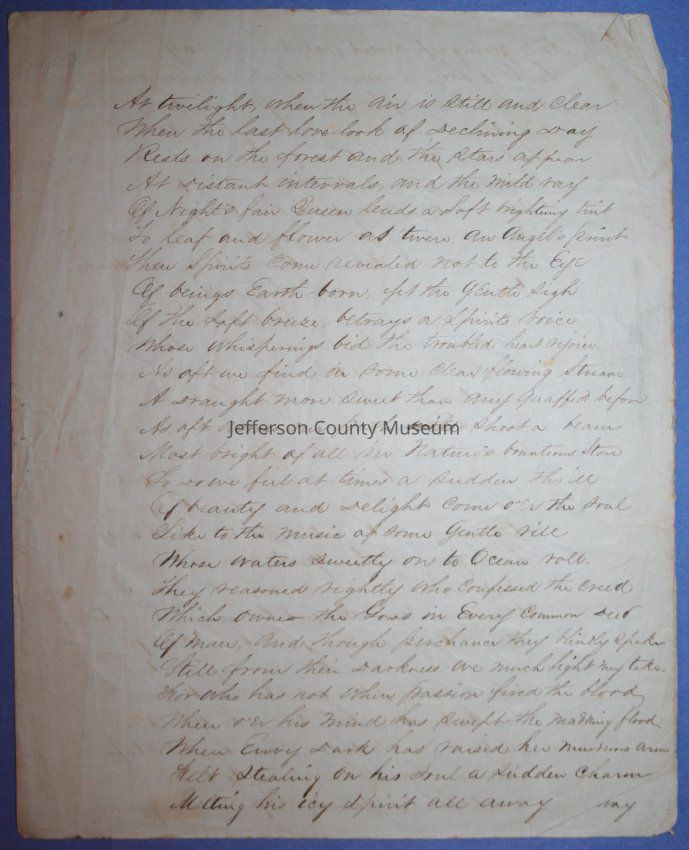 At twilight, when the air is still and clear
When the last love-look of Declining Day
Rests on the forest and the stars appear
At Distant intervals, and the mild ray
Of Night's fair Queen lends a soft tint
To leaf and flower as twere an Angel's print
Then Spirits come revealed not to the Eye
Of beings Earth-born, yet the Gentle Sigh
Of the soft breeze, betrays a Spirits voice
Whose whisperings bid the troubled heart rejoice.
As oft we find in some clear flowing Stream
A Draught more sweet than any quaffed before
As oft shoot a beam
Most bright of all in Nature's bounteous Store
So do we feel at times a sudden thrill
Of beauty and Delight come o'er the soul
Like to the music of some Gentle rill
Whose waters sweetly on to Ocean roll.
They reasoned rightly who confessed the creed
Which owned the Gods in Every Common Deed
Of Man, and though perchance they blindly spake
Still from their Darkness we much light may take.
For who has not when passion fired the blood
When o'er his mind has swept the madning flood
When Envy Dark has raised her murderous arm
Felt Stealing on his soul a sudden Charm
Melting his icy spirit all away
Jefferson County Museum